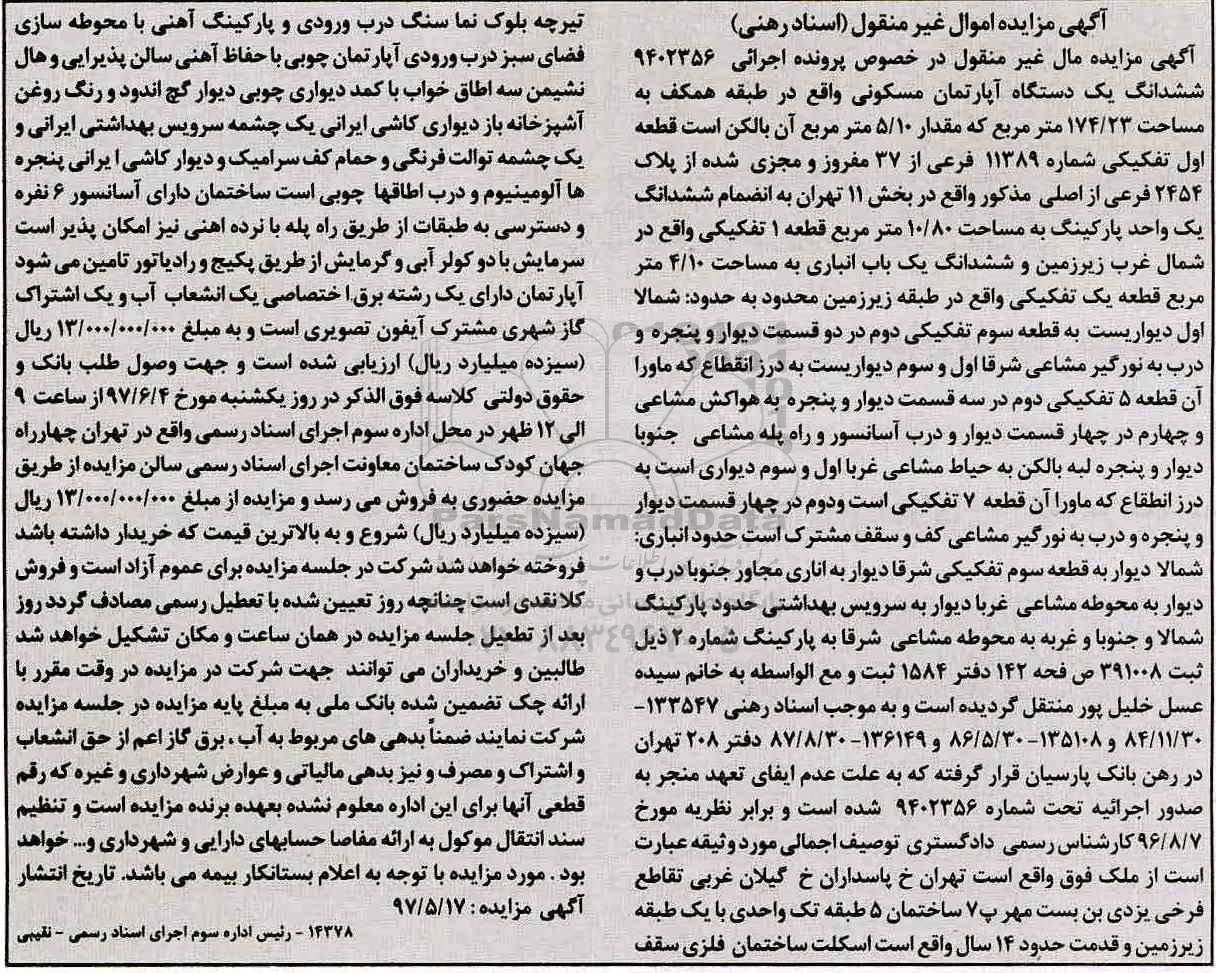 آگهی مزایده اموال غیر منقول (اسناد رهنی)
آگهی مزایده مال غیر منقول در خصوص پرونده اجرائی ۹۴۰۲۳۵۶
ششدانگ یک دستگاه آپارتمان مسکونی واقع در طبقه همکف به
مساحت ۱۷۴/۲۳ متر مربع که مقدار ۵/۱۰ متر مربع آن بالکن است قطعه
اول تفکیکی شماره ۱۱۳۸۹ فرعی از ۳۷ مفروز و مجزی شده از پلاک
۲۴۵۴ فرعی از اصلی مذکور واقع در بخش ۱۱ تهران به انضمام ششدانگ
یک واحد پارکینگ به مساحت ۱۰/۸۰ متر مربع قطعه ۱ تفکیکی واقع در
شمال غرب زیرزمین و ششدانگ یک باب انباری به مساحت ۴/۱۰ متر
مربع قطعه یک تفکیکی واقع در طبقه زیرزمین محدود به حدود: شمالا
اول دیواریست به قطعه سوم تفکیکی دوم در دو قسمت دیوار و پنجره و
درب به نورگیر مشاعی شرقا اول و سوم دیواریست به درز انقطاع که ماورا
آن قطعه ۵ تفکیکی دوم در سه قسمت دیوار و پنجره به هواکش مشاعی
و چهارم در چهار قسمت دیوار و درب آسانسور و راه پله مشاعی جنوبا
دیوار و پنجره لبه بالکن به حیاط مشاعی غربا اول و سوم دیواری است به
درز انطقاع که ماورا آن قطعه ۷ تفکیکی است ودوم در چهار قسمت دیوار
و پنجره و درب به نورگیر مشاعی کف و سقف مشترک است حدود انباری:
شمالا دیوار به قطعه سوم تفکیکی شرقا دیوار به اناری مجاور جنوبا درب و
دیوار به محوطه مشاعی غربا دیوار به سرویس بهداشتی حدود پارکینگ
شمالا و جنوبا و غربه به محوطه مشاعی شرقا به پارکینگ شماره ۲ ذیل
ثبت ۳۹۱۰۰۸ ص فحه ۱۴۲ دفتر ۱۵۸۴ ثبت و مع الواسطه به خانم سیده
عسل خلیل پور منتقل گردیده است و به موجب اسناد رهنی ۱۳۳۵۴۷-
۸۴/۱۱/۳۰ و ۱۳۵۱۰۸-۸۶/۵/۳۰ و ۱۳۶۱۴۹-۸۷/۸/۳۰ دفتر ۲۰۸ تهران
در رهن بانک پارسیان قرار گرفته که به علت عدم ایفای تعهد منجر به
صدور اجرائیه تحت شماره ۹۴۰۲۳۵۶ شده است و برابر نظریه مورخ
۹۶/۸/۷ کارشناس رسمی دادگستری توصیف اجمالی مورد وثیقه عبارت
است از ملک فوق واقع است تهران خ پاسداران خ گیلان غربی تقاطع
فرخی یزدی بن بست مهر پ۷ ساختمان ۵ طبقه تک واحدی با یک طبقه
زیرزمین و قدمت حدود ۱۴ سال واقع است اسکلت ساختمان فلزی سقف
تیرچه بلوک نما سنگ درب ورودی و پارکینگ آهنی با محوطه سازی
فضای سبز درب ورودی آپارتمان چوبی با حفاظ آهنی سالن پذیرایی و هال
نشیمن سه اطاق خواب با کمد دیواری چوبی دیوار گچ اندود و رنگ روغن
آشپزخانه باز دیواری کاشی ایرانی یک چشمه سرویس بهداشتی ایرانی و
یک چشمه توالت فرنگی و حمام کف سرامیک و دیوار کاشی ایرانی پنجره
ها آلومینیوم و درب اطاقها چوبی است ساختمان دارای آسانسور ۶ نفره
و دسترسی به طبقات از طریق راه پله با نرده اهنی نیز امکان پذیر است
سرمایش با دو کولر آبی و گرمایش از طریق پکیج و رادیاتور تامین می شود
آپارتمان دارای یک رشته برق.اختصاصی یک انشعاب آب و یک اشتراک
گاز شهری مشترک آیفون تصویری است و به مبلغ ۱۳/۰۰۰/۰۰۰/۰۰۰ ریال
(سیزده میلیارد ریال) ارزیابی شده است و جهت وصول طلب بانک و
حقوق دولتی کلاسه فوق الذکر در روز یکشنبه مورخ ۹۷/۶/۴ از ساعت ۹
الی ۱۲ ظهر در محل اداره سوم اجرای اسناد رسمی واقع در تهران چهارراه
جهان کودک ساختمان معاونت اجرای اسناد رسمی سالن مزایده از طریق
مزایده حضوری به فروش می رسد و مزایده از مبلغ ۱۳/۰۰۰/۰۰۰/۰۰۰ ریال
(سیزده میلیارد ریال) شروع و به بالاترین قیمت که خریدار داشته باشد
فروخته خواهد شد شرکت در جلسه مزایده برای عموم آزاد است و فروش
کلا نقدی است چنانچه روز تعیین شده با تعطیل رسمی مصادف گردد روز
بعد از تطعیل جلسه مزایده در همان ساعت و مکان تشکیل خواهد شد
طالبین و خریداران می توانند جهت شرکت در مزایده در وقت مقرر با
ارائه چک تضمین شده بانک ملی به مبلغ پایه مزایده در جلسه مزایده
شرکت نمایند ضمناً بدهی های مربوط به آب ، برق گاز اعم از حق انشعاب
و اشتراک و مصرف و نیز بدهی مالیاتی و عوارض شهرداری و غیره که رقم
قطعی آنها برای این اداره معلوم نشده بعهده برنده مزایده است و تنظیم
سند انتقال موکول به ارائه مفاصا حسابهای دارایی و شهرداری و... خواهد
بود . مورد مزایده با توجه به اعلام بستانکار بیمه می باشد. تاریخ انتشار
آگهی مزایده : ۹۷/۵/۱۷
۱۴۳۷۸ - رئیس اداره سوم اجرای اسناد رسمی - نقیبی
ParsNamadData